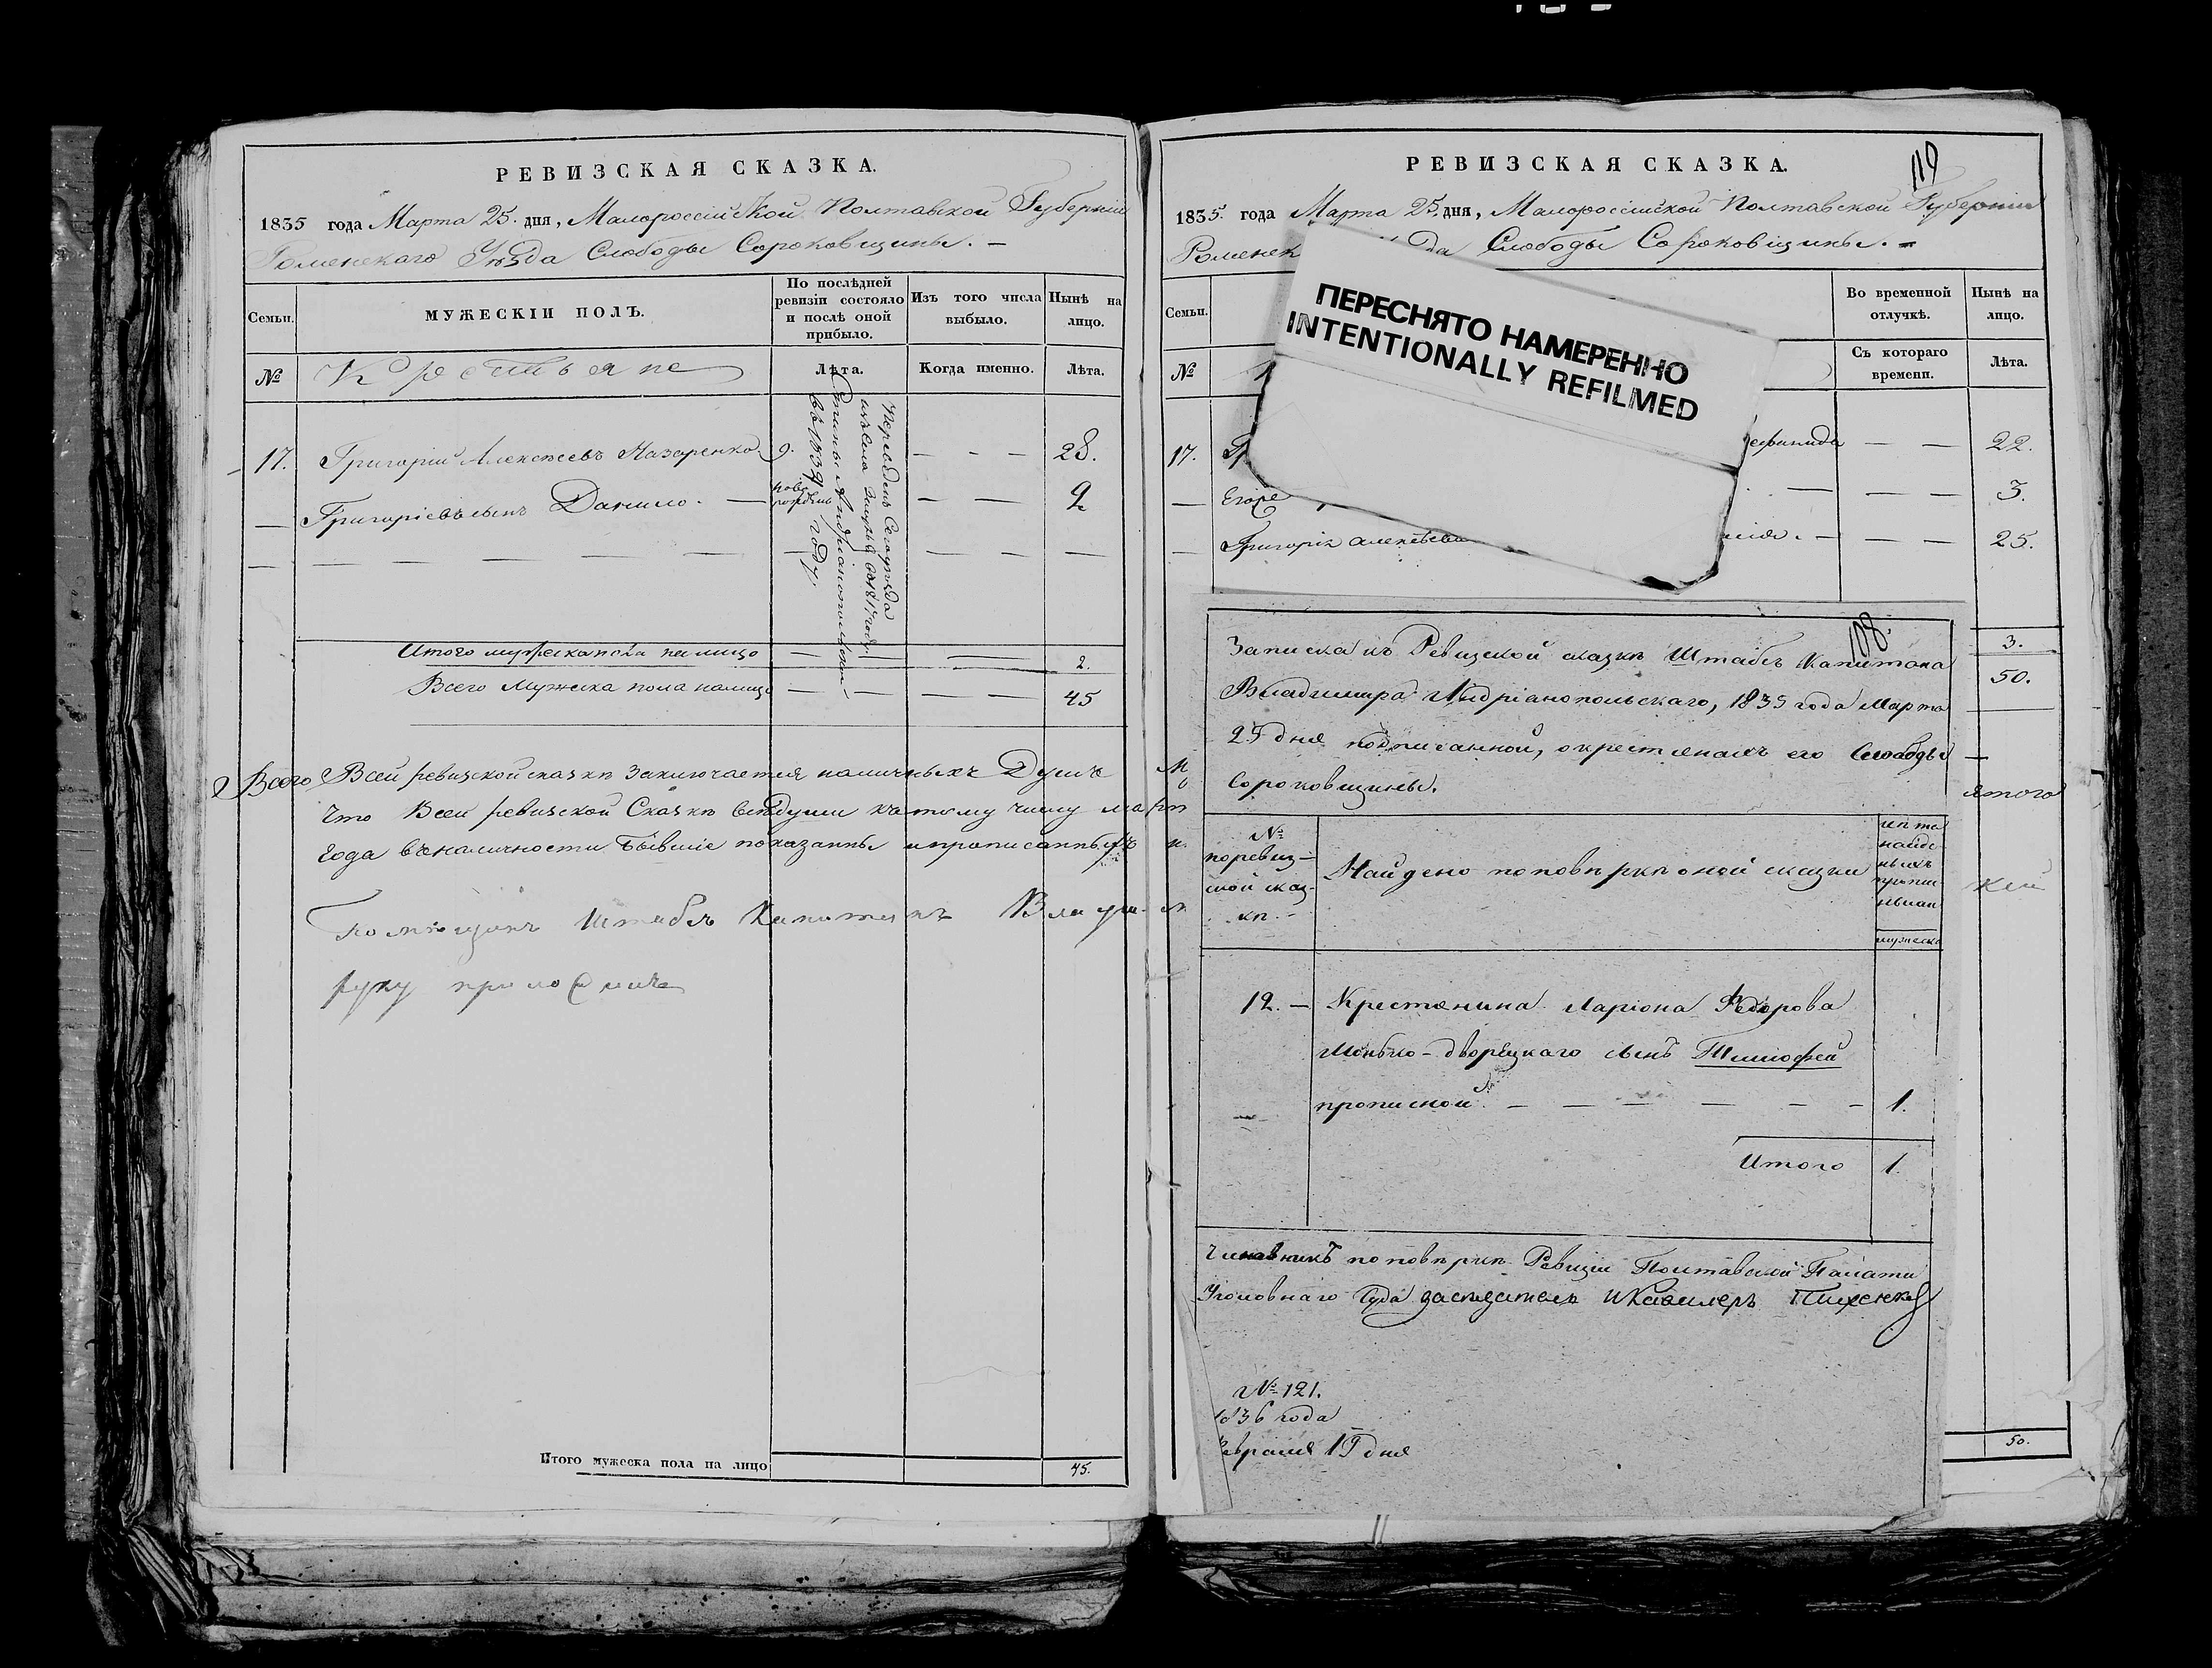 РЕВИЗСКАЯ СКАЗКА.
1835 года Марта 25. дня, Малороссійской Полтавской Губерніи
Роменскаго Уѣзда Слободы Сороковщины. —
Семьи.
МУЖЕСКІЙ ПОЛЪ.
По послѣдней ревизіи состояло и послѣ оной прибыло.
Изъ того числа выбыло.
Нынѣ на лицо.
№
Крестьяне
Лѣта.
Когда именно.
Лѣта.
17. Григорій Алексѣевъ Назаренко. 9. — — 28.
— Григоріевъ сынъ Данило. — ново рожденъ — — 2
Итого мужеска пола на лицо — — 2.
Всего Мужеска пола налицо — — — — 45
Всего Всей ревизской сказкѣ заключается наличныхъ Душъ
Что Всей ревизской Сказкѣ всѣ души къ тому числу март
Года въ наличности бывшіе показанны и прописанныхъ
Помѣщикъ Штабсъ Капитанъ Влади
руку приложилъ
Итого мужеска пола на лицо 45.
119
РЕВИЗСКАЯ СКАЗКА.
1835. года Марта 25. дня, Малороссійской Полтавской Губерніи
Роменск да Слободы Сороковщины. —
Семьи.
Во временной отлучкѣ.
Нынѣ на лицо.
№
Съ котораго времени.
Лѣта.
ПЕРЕСНЯТО НАМЕРЕННО
INTENTIONALLY REFILMED
17. — — 22.
— — — 3.
— Григорія Алексѣева — — 25.
3.
50.
108.
Записка къ Ревизской сказкѣ Штабсъ Капитана
Владимира Андріанопольскаго, 1835 года Марта
25 дня подписанной, о крестьянахъ его Слободы
Сороковщины.
№ по ревизской сказкѣ. —
Найдено по повѣркѣ оной сказки
мужеска
12. — Крестянина Ларіона Федорова
дворецкаго сынъ Тимофей
прописной. — — — — — — 1.
Итого 1.
Чиновникъ по повѣркѣ Ревизіи Полтавской Палаты
Уголовнаго Суда засѣдатель и Кавалеръ
№ 121.
1836 года
евраля 19 дня
50.